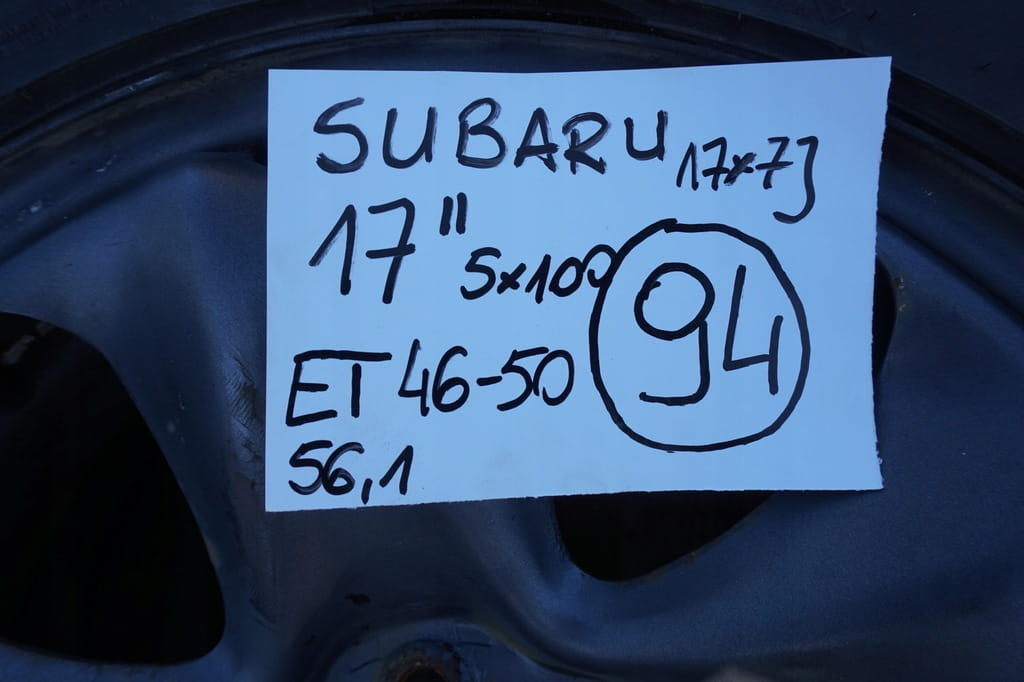 SUBARU
17x7J
17"
5x100
94
ET 46-50
56,1